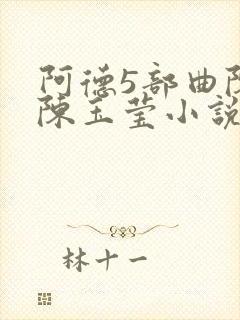 阿德5部曲陈
陳玉莹小說
林十一